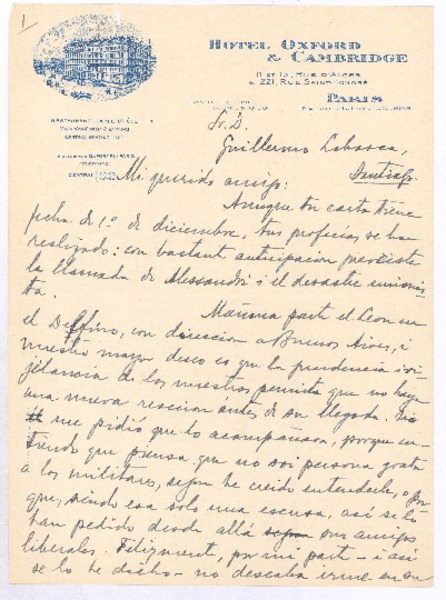 1
HOTEL OXFORD
& CAMBRIDGE
11 ET 13, RUE D'ALGER
& 221, RUE SAINT-HONORÉ
PARIS
Sr. D.
Guillermo Labarca,
Santiago.
Mi querido amigo:
Aunque tu carta tiene
fecha de 1º de diciembre, tus profecías se han
realizado: con bastante anticipacion previste
la llamada de Alessandri i el desastre unionis-
ta.
Mañana parte el Leon en
el Delfino, con direccion a Buenos Aires, i
nuestro mayor deseo es que la prudencia i vi-
jilancia de los nuestros permita que no haya
una nueva reaccion ántes de su llegada. No
me pidió que lo acompañara, porque en-
tiendo que piensa que no soi persona grata
a los militares, segun he creido entenderle, o por-
que, siendo esa solo una escusa, así se lo
han pedido desde allá sus amigos
liberales. Felizmente, por mi parte - i así
se lo he dicho - no deseaba irme en su